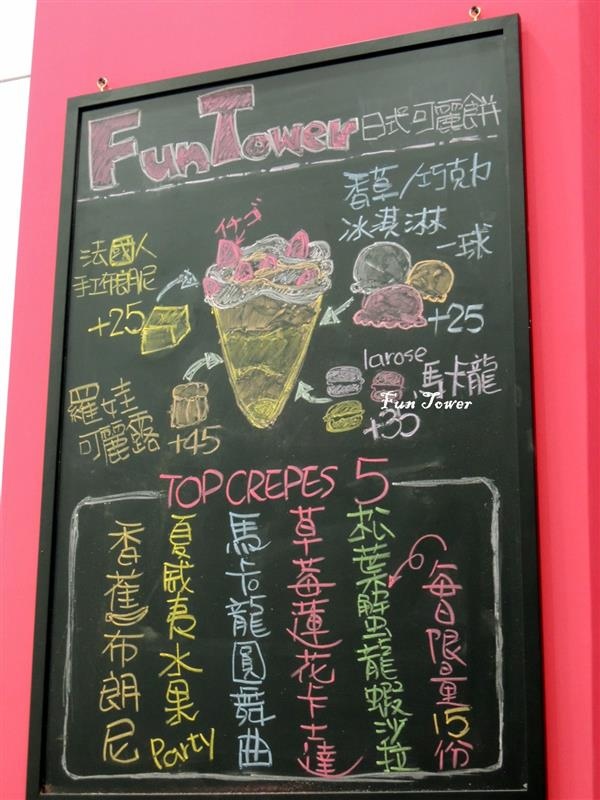 Fun Tower 日式可麗餅
香草/巧克力
冰淇淋
一球
+25
イチゴ
法國人
手工布朗尼
+25
larose
馬卡龍
+35
Fun Tower
羅娃
可麗露
+45
TOP CREPES 5
每日限量15份
松葉蟹龍蝦沙拉
草莓蓮花卡士達
馬卡龍圓舞曲
夏威夷水果Party
香蕉布朗尼